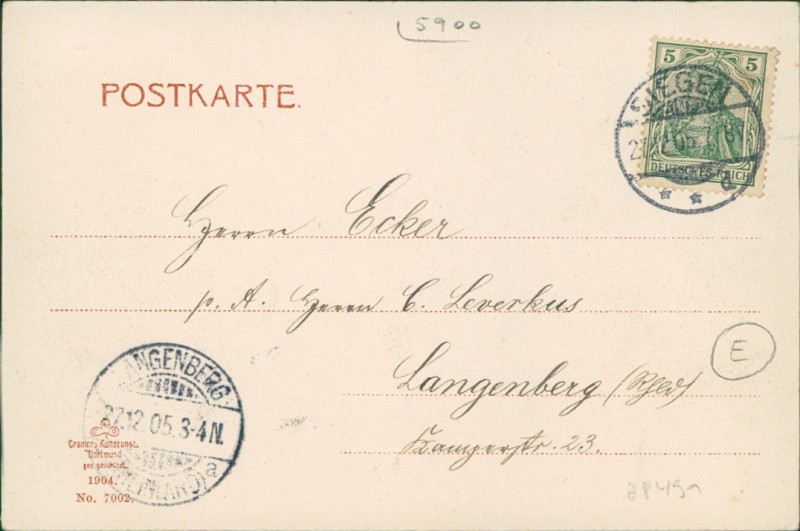 5900
POSTKARTE.
5 5
SIEGEN
DEUTSCHES REICH
Herrn Ecker
p. A. Herrn C. Leverkus
Langenberg (Rhld)
Kamperstr. 23.
E
LANGENBERG
27.12.05.3-4N.
(RHEINLAND) a
Cramers Kunstanst.
Dortmund
ges. geschützt.
1904.
No. 7002.